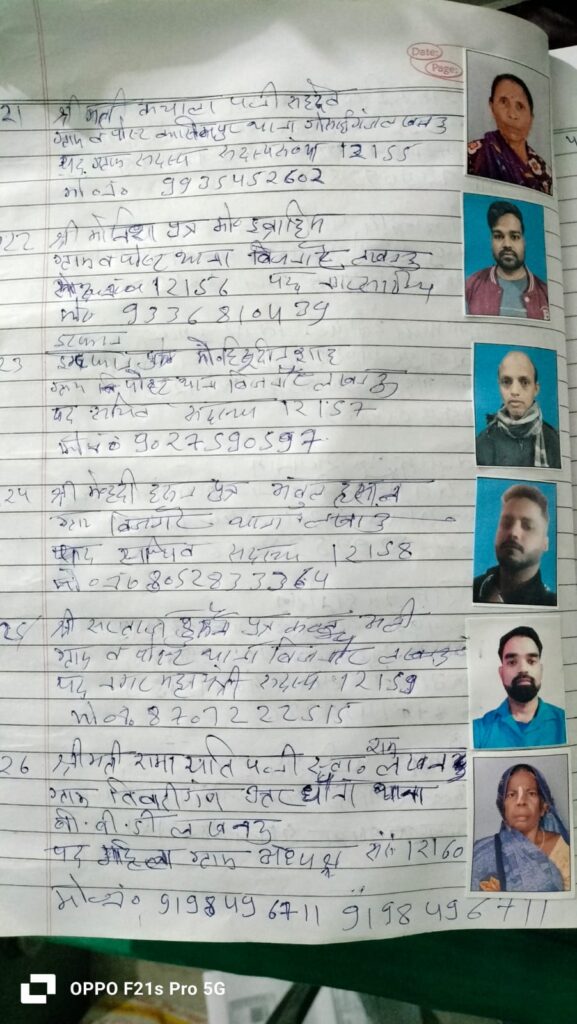 Date:
Page:
21 श्री मती कैपाला पत्नी सहदेव
ग्राम व पोस्ट थाना गोसाईगंज लखनऊ
पद ग्राम सदस्य सदस्य संख्या 12155
मो० नं० 9935452602
22 श्री पुत्र मो० इब्राहिम
ग्राम व पोस्ट थाना बिजनौर लखनऊ
12156 पद
मो० 9336810439
इरफान
23 पुत्र शाह
ग्राम व पोस्ट थाना बिजनौर लखनऊ
पद सचिव सदस्य 12157
मो० नं० 9027590597
24 श्री मेहदी हसन पुत्र हसन
ग्राम बिजनौर थाना लखनऊ
पद सचिव सदस्य 12158
मो० नं० 8052833364
25 श्री पुत्र अली
ग्राम व पोस्ट थाना बिजनौर लखनऊ
पद नगर महामंत्री सदस्य 12159
मो० नं. 8707222515
राम
26 श्रीमती रामा पति पत्नी लखन
ग्राम तिवारीगंज थाना
बी.बी.डी लखनऊ
पद महिला ग्राम अध्यक्ष सं० 12160
मो० नं० 9198496711 9198496711
OPPO F21s Pro 5G